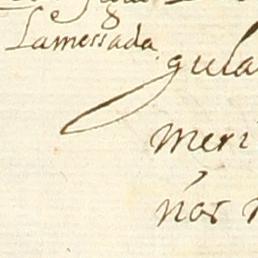 Lamessada
gula
meri
nós